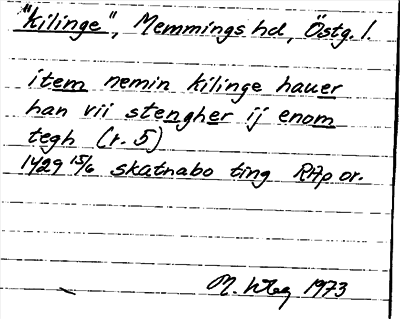 "Kilinge", Memmings hd, Östg. l.
item nemin kilinge hauer
han vii stengher ij enom
tegh (r. 5)
1429 15/6 skatnabo ting RAp or.
M. 1973